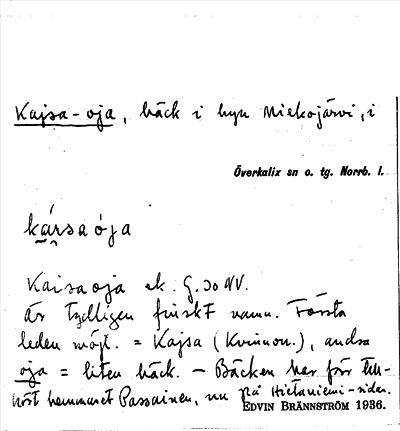 Kajsa-oja, bäck i byn Miekojärvi, i
Överkalix sn o. tg. Norrb. l.
Kaisaoja ek. G. 30 NV.
är tydligen finskt namn. Första
leden möjl. = Kajsa (Kvinnon.), andra
oja = liten bäck. – Bäcken har förr till-
hört hemmanet Passainen, nu på Hietaniemi-sidan.
EDVIN BRÄNNSTRÖM 1936.